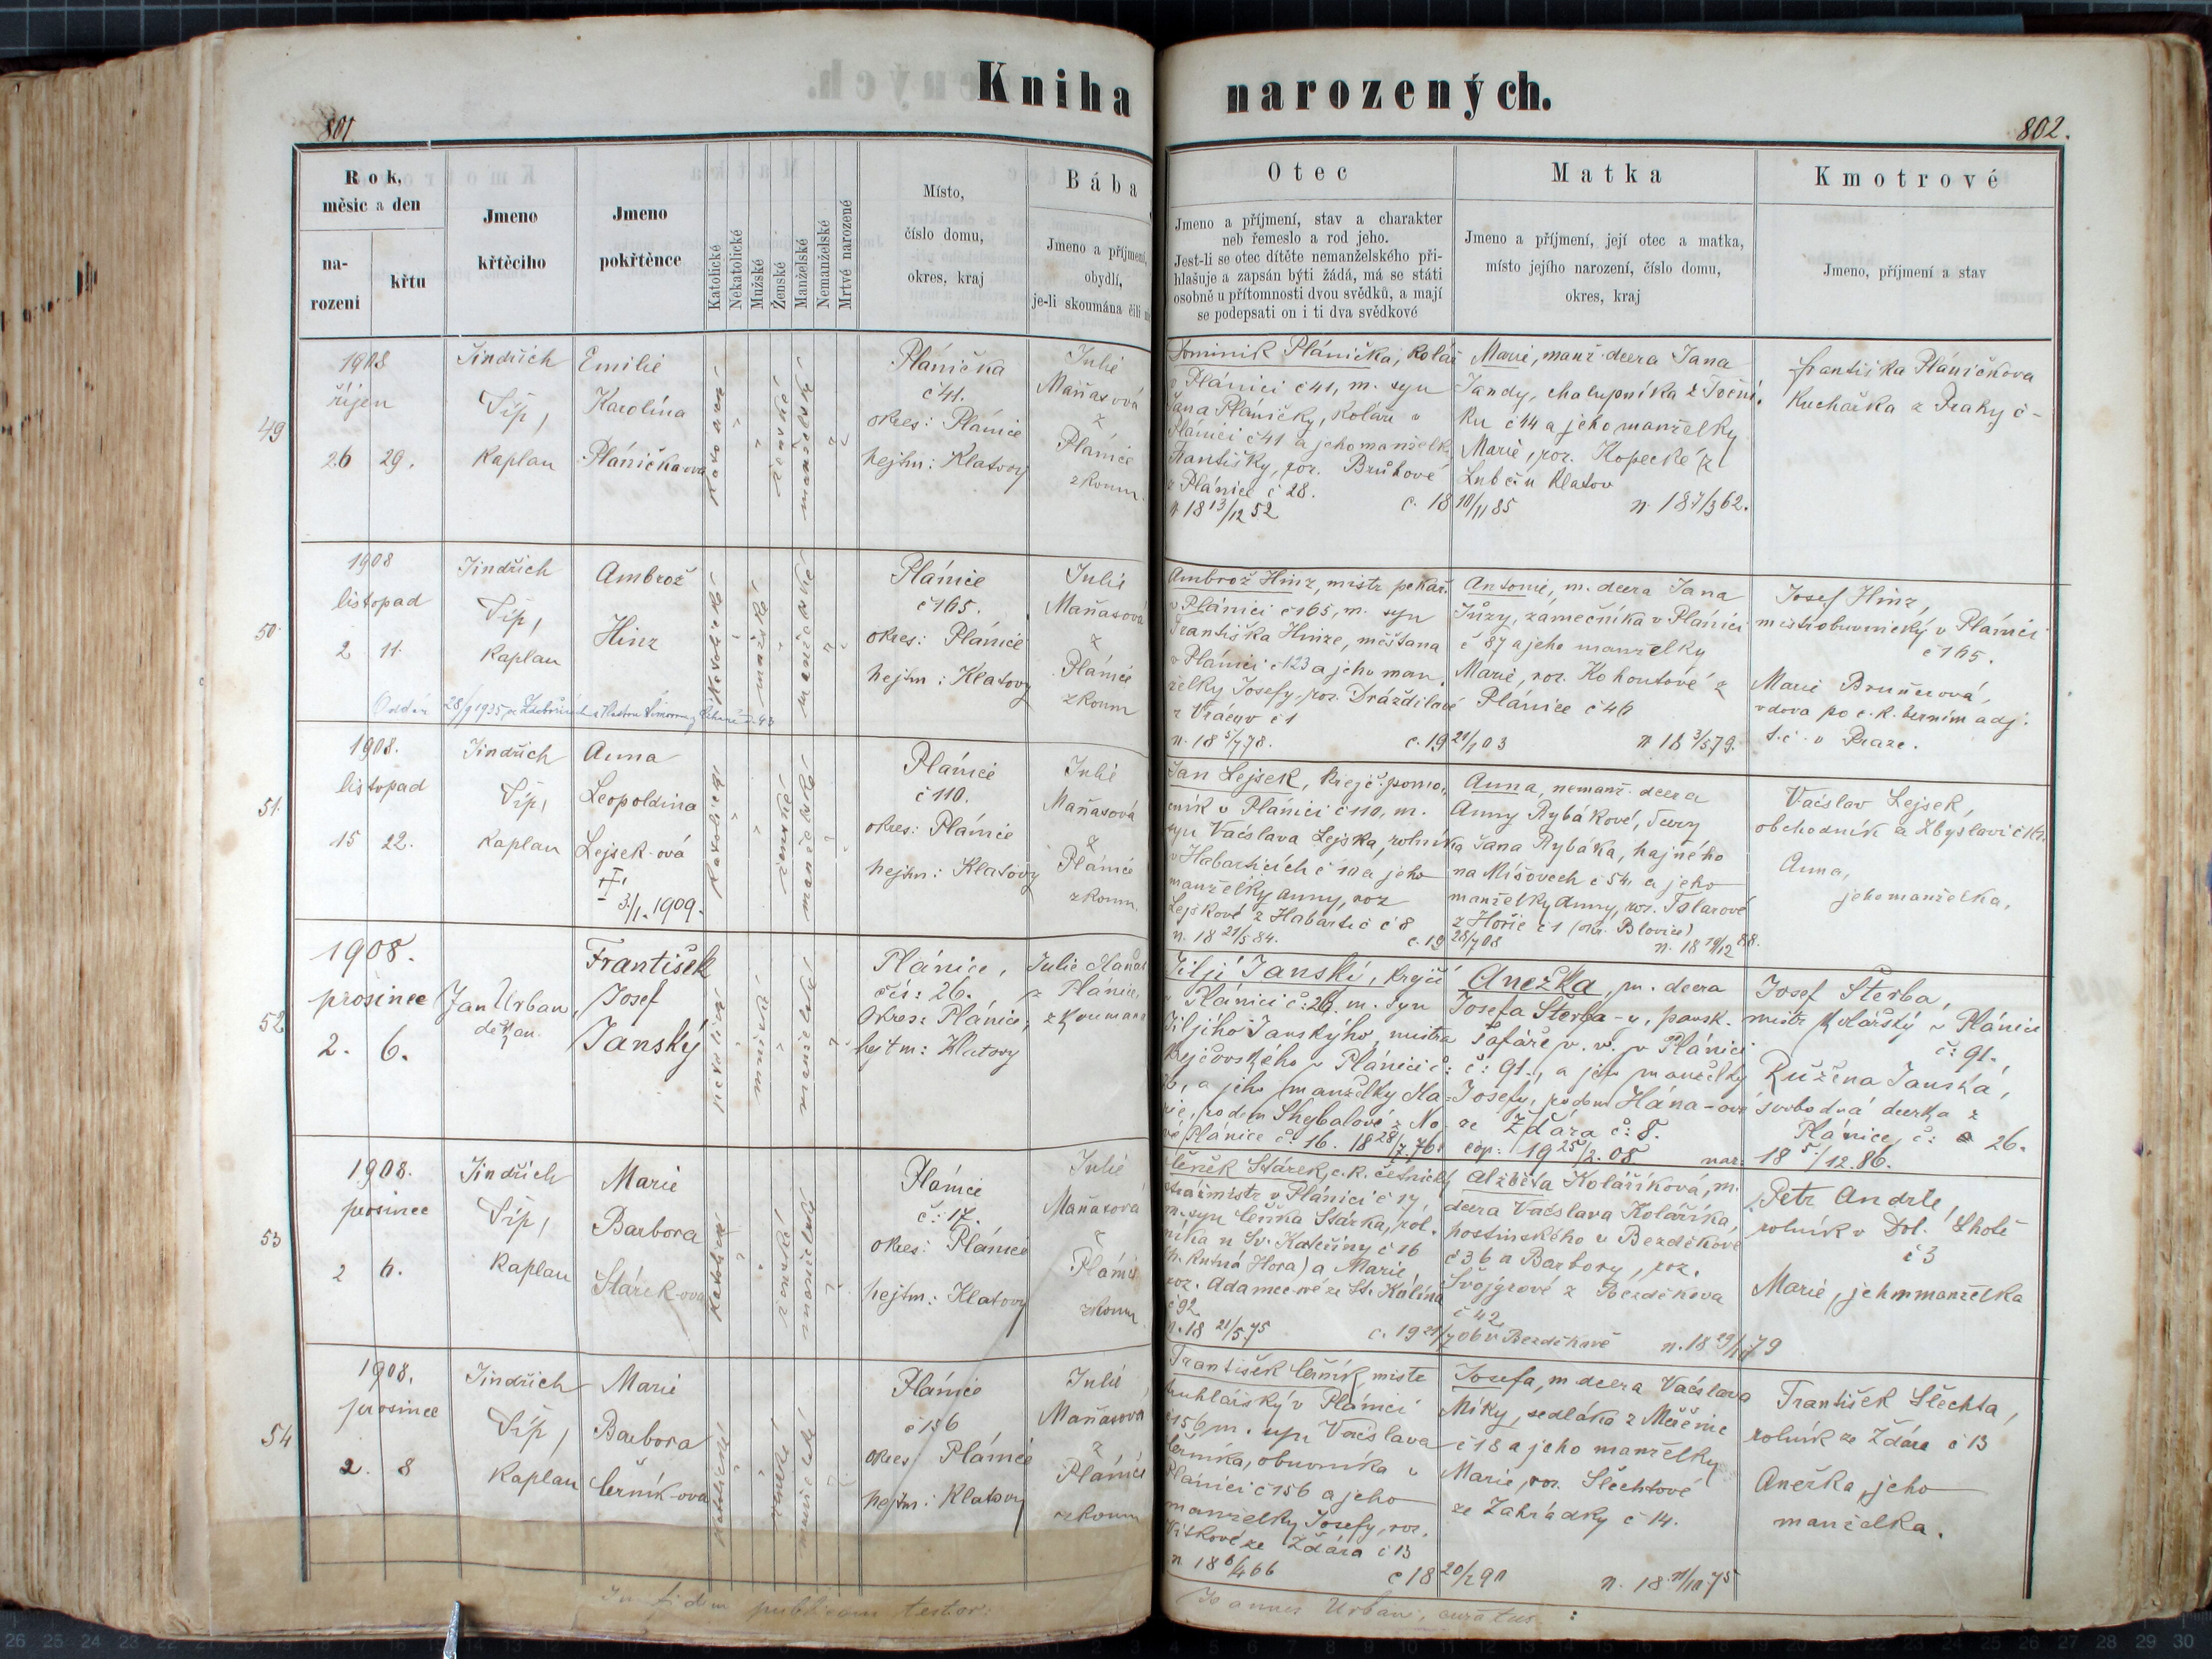 Kniha narozených.
801.
802.
Rok, měsíc a den
na-
rození
křtu
Jmeno
křtěcího
Jmeno
pokřtěnce
Katolické
Nekatolické
Mužské
Ženské
Manželské
Nemanželské
Mrtvě narozené
Místo,
číslo domu,
okres, kraj
Bába
Jmeno a příjmení,
obydlí,
je-li skoumána čili
Otec
Jmeno a příjmení, stav a charakter
neb řemeslo a rod jeho.
Jest-li se otec dítěte nemanželského při-
hlašuje a zapsán býti žádá, má se státi
osobně u přítomnosti dvou svědků, a mají
se podepsati on i ti dva svědkové
Matka
Jmeno a příjmení, její otec a matka,
místo jejího narození, číslo domu,
okres, kraj
Kmotrové
Jmeno, příjmení a stav
49
1908
říjen
26 29.
Jindřich
Síp,
Kaplan
Emilie
Karolína
Pláničkova
ženské
manželské
Plánička
č 41.
okres: Plánice
hejtm: Klatovy
Julie
Maňasová
z
Plánice
zkoum.
Dominik Plánička, kolář
v Plánici č 41, m. syn
Jana Pláničky, koláře v
Plánici č 41 a jeho manželk.
Františky, roz. Brůhové
z Plánice č 28.
n 18 13/12 52
c. 18 10/11 85
Marie, manž. dcera Jana
Jandy, chalupníka z Toční.
ku č 14 a jeho manželky
Marie, roz. Kopecké z
Lubčí u Klatov
n. 18 7/3 62.
Františka Pláničkova
Kuchařka z Prahy č -
50.
1908
listopad
2 11.
Jindřich
Síp,
Kaplan
Ambrož
Hinz
katolické
mužské
manželské
Plánice
č 165.
okres: Plánice
hejtm: Klatovy
Julie
Maňasová
z
Plánice
zkoum
Oddán 28/9 1935
Ambrož Hinz, mistr pekař.
v Plánici č 165, m. syn
Františka Hinze, měšťana
v Plánici č 123 a jeho man.
želky Josefy, roz. Dráždilové
z Vracov č 1
n. 18 5/7 78.
c. 19 21/1 03
Antonie, m. dcera Jana
Jůzy, zámečníka v Plánici
č 87 a jeho manželky
Marie, roz. Kohoutové z
Plánice č 46
n 18 3/5 79.
Josef Hinz,
mistr obuvnický v Plánici
č 165.
Marie Brunnerová,
vdova po c. k. berním adj.
t. č. v Praze.
51.
1908.
listopad
15 22.
Jindřich
Síp,
Kaplan
Anna
Leopoldina
Lejsek-ová
3./1. 1909.
katolické
ženské
manželské
Plánice
č 110.
okres: Plánice
hejtm: Klatovy
Julie
Maňasová
z
Plánice
zkoum.
Jan Lejsek, krejč. pomo.
cník v Plánici č 110, m.
syn Václava Lejska, rolníka
v Habarticích č 10 a jeho
manželky Anny, roz
Lejskové z Habartic č 8
n. 18 21/5 84.
c. 19 28/7 08
Anna, nemanž. dcera
Anny Rybákové, dcery
Jana Rybáka, hajného
na Míšovech č 54, a jeho
manželky Anny, roz. Tolarové
z Hořic č 1 (okr. Blovice)
n. 18 19/12 88.
Václav Lejsek,
obchodník z Zbyslavi č 16.
Anna,
jeho manželka,
52
1908.
prosinec
2. 6.
Jan Urban,
děkan.
František
Josef
Janský
mužské
manželské
Plánice,
čís: 26.
Okres: Plánice,
hejtm: Klatovy
Julie Maňas
z Plánice,
zkoumaná
Jiljí Janský, krejčí
v Plánici č: 26. m. syn
Jiljího Janskýho, mistra
krejčovského v Plánici č:
26, a jeho manželky Ma-
rie, rodem Skybalové z No
vé Plánice č: 16. 18 28/7 76.
cop: 19 25/2. 08
Anežka, m. dcera
Josefa Štěrba-y, pansk.
šafáře v. v. v Plánici
č: 91., a jeho manželky
Josefy, rodem Hána-ové
ze Žďára č: 8.
nar: 18 5/12. 86.
Josef Štěrba,
mistr kolářský v Plánici
č: 91.,
Růžena Janská,
svobodná dcerka z
Plánice, č: 26.
53
1908.
prosinec
2 6.
Jindřich
Síp,
Kaplan
Marie
Barbora
Stárek-ova
katolické
ženské
manželské
Plánice
č: 17.
okres: Plánice
hejtm: Klatovy
Julie
Maňasová
z
Plánice
zkoum
Čeněk Stárek, c. k. četnický
strážmistr v Plánici č 17,
m. syn Čeňka Stárka, rol.
níka u Sv. Kateřiny č 16
(h. Kutná Hora) a Marie,
roz. Adamcové ze St. Kolína
č 92
n. 18 21/5 75
Alžběta Kolaříková, m.
dcera Václava Kolaříka,
hostinského v Bezděkově
č 36 a Barbory, roz.
Svojgrové z Bezděkova
č 42
v Bezděkově
Petr Andrle,
rolník v Dol. Lhotě
č 3
Marie, jeho manželka
54
1908.
prosinec
2. 8
Jindřich
Síp,
Kaplan
Marie
Barbora
Černík-ova
katolické
ženské
manželské
Plánice
č 156
okres: Plánice
hejtm: Klatovy
Julie
Maňasova
z
Plánice
zkoum
František Černík, mistr
truhlářský v Plánici
č 156 m. syn Václava
Černíka, obuvníka v
Plánici č 156 a jeho
manželky Josefy, roz.
Vítkové ze Žďára č 13
n 18 6/4 66
Josefa, m dcera Václava
Míky, sedláka z Měčnic
č 18 a jeho manželky
Marie, roz. Šlechtové
ze Zahrádky č 14.
n. 18 11/10 75
František Šlechta,
rolník ze Žďára č 13
Anežka, jeho
manželka.
In fidem publicam testor:
Joannes Urban, curatus.